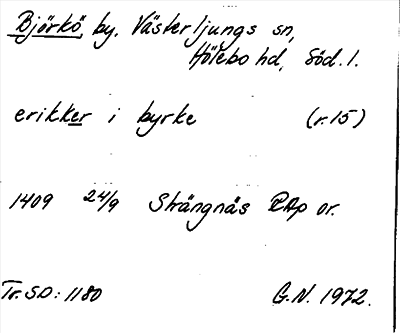 Björkö, by. Västerljungs sn,
Hölebo hd, Söd. l.
erikker i byrke (r. 15)
1409 24/9 Strängnäs RAp or.
Tr. SD: 1180 G.N. 1972.